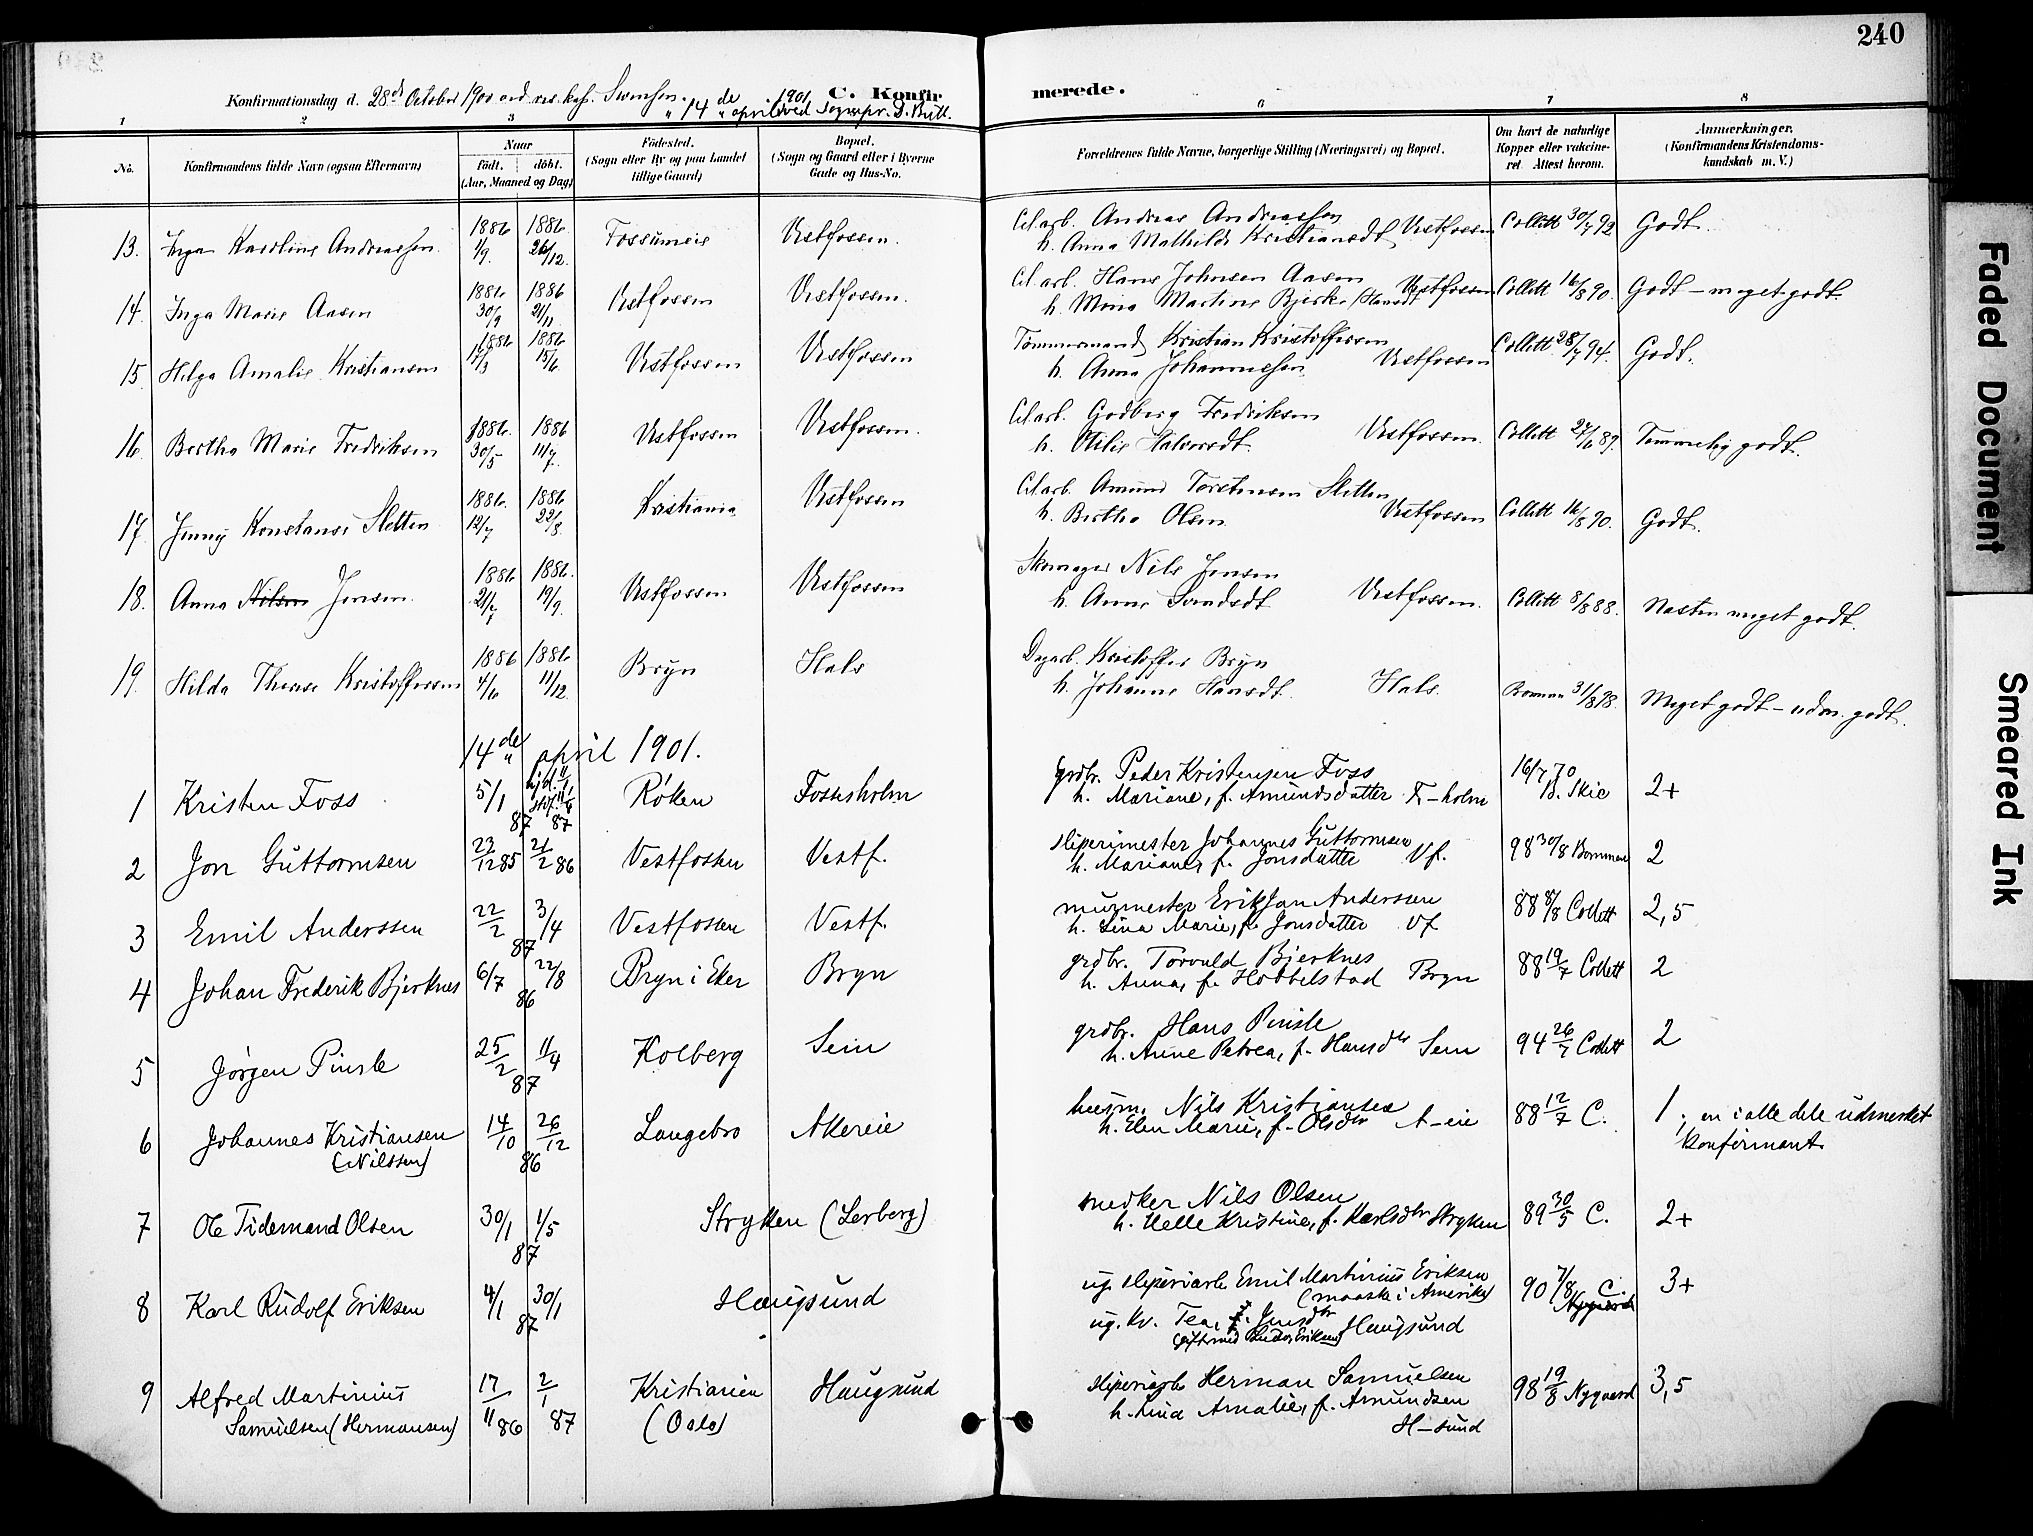 240
Konfirmationsdag d. 28de October 1900 ved res. kap. Svensen.
" 14 de april 1901 ved Sognepr. D. Bull.
C. Konfirmerede.
1 2 3 6 7 8
No. Konfirmandens fulde Navn (ogsaa Efternavn) Naar födt. döbt. (Aar, Maaned og Dag) Födested. (Sogn eller By og paa Landet tillige Gaard) Bopæl. (Sogn og Gaard eller i Byerne Gade og Hus-No. Forældrenes fulde Navne, borgerlige Stilling (Næringsvei) og Bopæl. Om havt de naturlige Kopper eller vaccineret. Attest herom. Anmærkninger. (Konfirmandens Kristendomskundskab m. V.)
13. Inga Karoline Andreassen. 1886 1/9. 1886 26/12. Fossumeie Vestfossen. Cel.arb. Andreas Andreassen
h. Anna Mathilde Kristiansdt. Vestfossen Collett 30/7 92 Godt.
14. Inga Marie Aasen 1886 30/9 1886 21/11 Vestfossen Vestfossen. Cel.arb. Hans Johnsen Aasen
h. Mina Martine Bjerke (Hansdt Vestfossen Collett 16/8 90. Godt – meget godt.
15. Helga Amalie Kristiansen 1886 17/3 1886 15/6. Vestfossen Vestfossen Tømmermand Kristian Kristoffersen
h. Anna Johannessen Vestfossen Collett 28/7 94. Godt.
16. Bertha Marie Fredriksen 1886. 30/5 1886 11/7. Vestfossen Vestfossen. Cel.arb. Godberg Fredriksen
h. Otilie Halvorsdt. Vestfossen. Collett 27/6 89. Temmelig godt.
17. Jenny Konstanse Sletten 1886. 12/7 1886 22/8. Kristiania Vestfossen Cel.arb. Amund Torstensen Sletten
h. Bertha Olsen Vestfossen Collett 16/8 90. Godt.
18. Anna Nilsen Jensen. 1886 21/7 1886. 19/9. Vestfossen Vestfossen Skomager Nils Jensen
h. Anne Svendsdt. Vestfossen. Collett 8/8 88. Næsten meget godt.
19. Hilda Therese Kristoffersen 1886 4/10 1886. 11/12. Bryn Hals Dagarb. Kristoffer Bryn
h. Johanne Hansdt. Hals. Bomman 31/8 98. Meget godt – udm. godt.
14 de april 1901.
1 Kristen Foss 5/1 87 hjd. 11/1 stdf. 11/6 87 Røken Fossesholm grdbr. Peder Kristensen Foss
h. Mariane, f. Amundsdatter F–holm 16/7 70 B. Skie 2+
2 Jon Guttormsen 23/12 85 21/2 86 Vestfossen Vestf. sliperimester Johannes Guttormsen
h. Mariane, f. Jonsdatter Vf. 98 30/8 Bomman 2
3 Emil Anderssen 22/2 3/4 87 Vestfossen Vestf. murmester Erik Jan Andersen
h. Lina Marie, f. Jonsdatter Vf 88 8/8 Collett 2,5
4 Johan Frederik Bjerknes 6/7 22/8 86 Bryn i Eker Bryn grdbr. Torvald Bjerknes
h. Anna, f. Hobbelstad Bryn 88 19/7 Collett 2
5 Jørgen Pinsle 25/2 11/4 87 Kolberg Sem grdbr. Hans Pinsle
h. Anne Petrea, f. Hansdtr Sem 94 26/7 Collett 2
6 Johannes Kristiansen 14/10 26/12 86 Langebro Akereie husm. Nils Kristiansen
(Nilssen) h. Elen Marie, f. Olsdtr A–eie 88 12/7 C. 1; en i alle dele udmerket konfirmant.
7 Ole Tidemand Olsen 30/1 1/5 87 Stryken (Lerberg) snedker Nils Olsen
h. Helle Kristine, f. Karlsdtr Stryken 89 30/5 C. 2+
8 Karl Rudolf Eriksen 4/1 30/1 87 Haugsund ug. sliperiarb Emil Martinius Eriksen
(maaske i Amerika) 90 7/8 C. Nygaard 3+
ug. kv. Tea, f. Jensdtr
Haugsund
9 Alfred Martinius 17/11 86 2/1 87 Kristiania Haugsund sliperiarb Herman Samuelsen
Samuelsen (Hermansen) (Oslo) h. Lina Amalie, f. Amundsen 98 19/8 Nygaard 3,5
H–sund
Faded Document
Smeared Ink